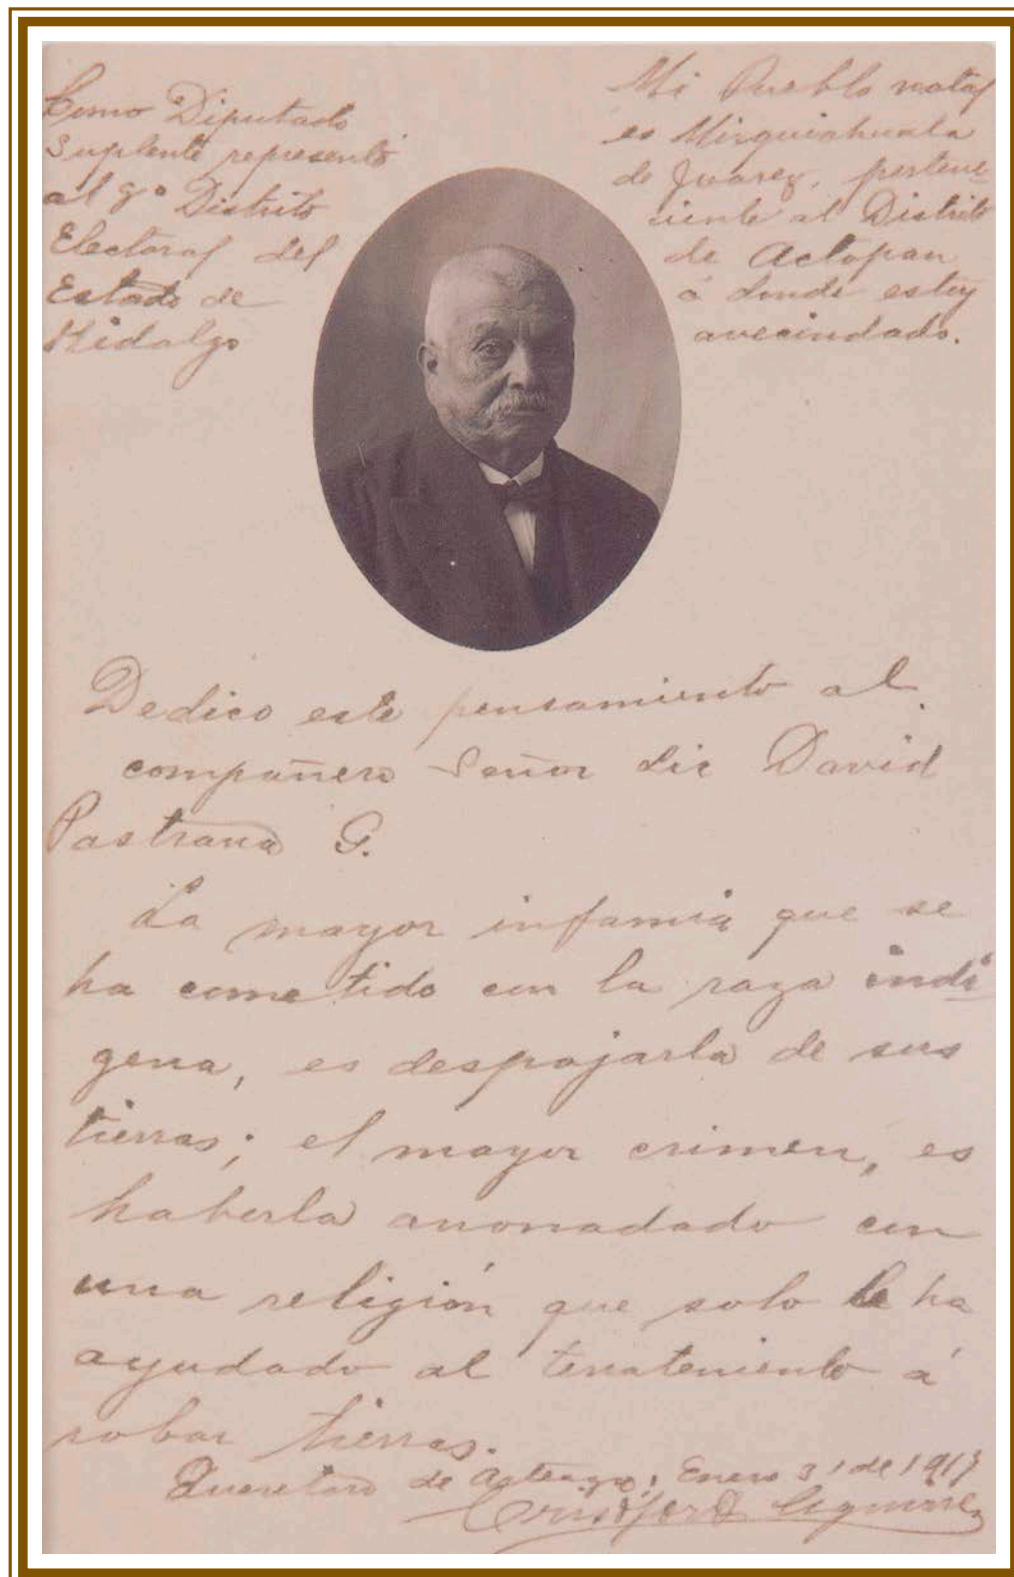 Como Diputado
Suplente represento
al 9º Distrito
Electoral del
Estado de
Hidalgo
Mi Pueblo natal
es Mixquiahuala
de Juarez, pertene-
ciente al Distrito
de Actopan
á donde estoy
avecindado.
Dedico este pensamiento al
compañero Señor Lic David
Pastrana G.
La mayor infamia que se
ha cometido con la raza indí
gena, es despojarla de sus
tierras; el mayor crimen, es
haberla anonadado con
una religión que solo le ha
ayudado al terrateniente á
robar tierras.
Queretaro de Arteaga, Enero 31 de 1917
Crisóforo Aguirre